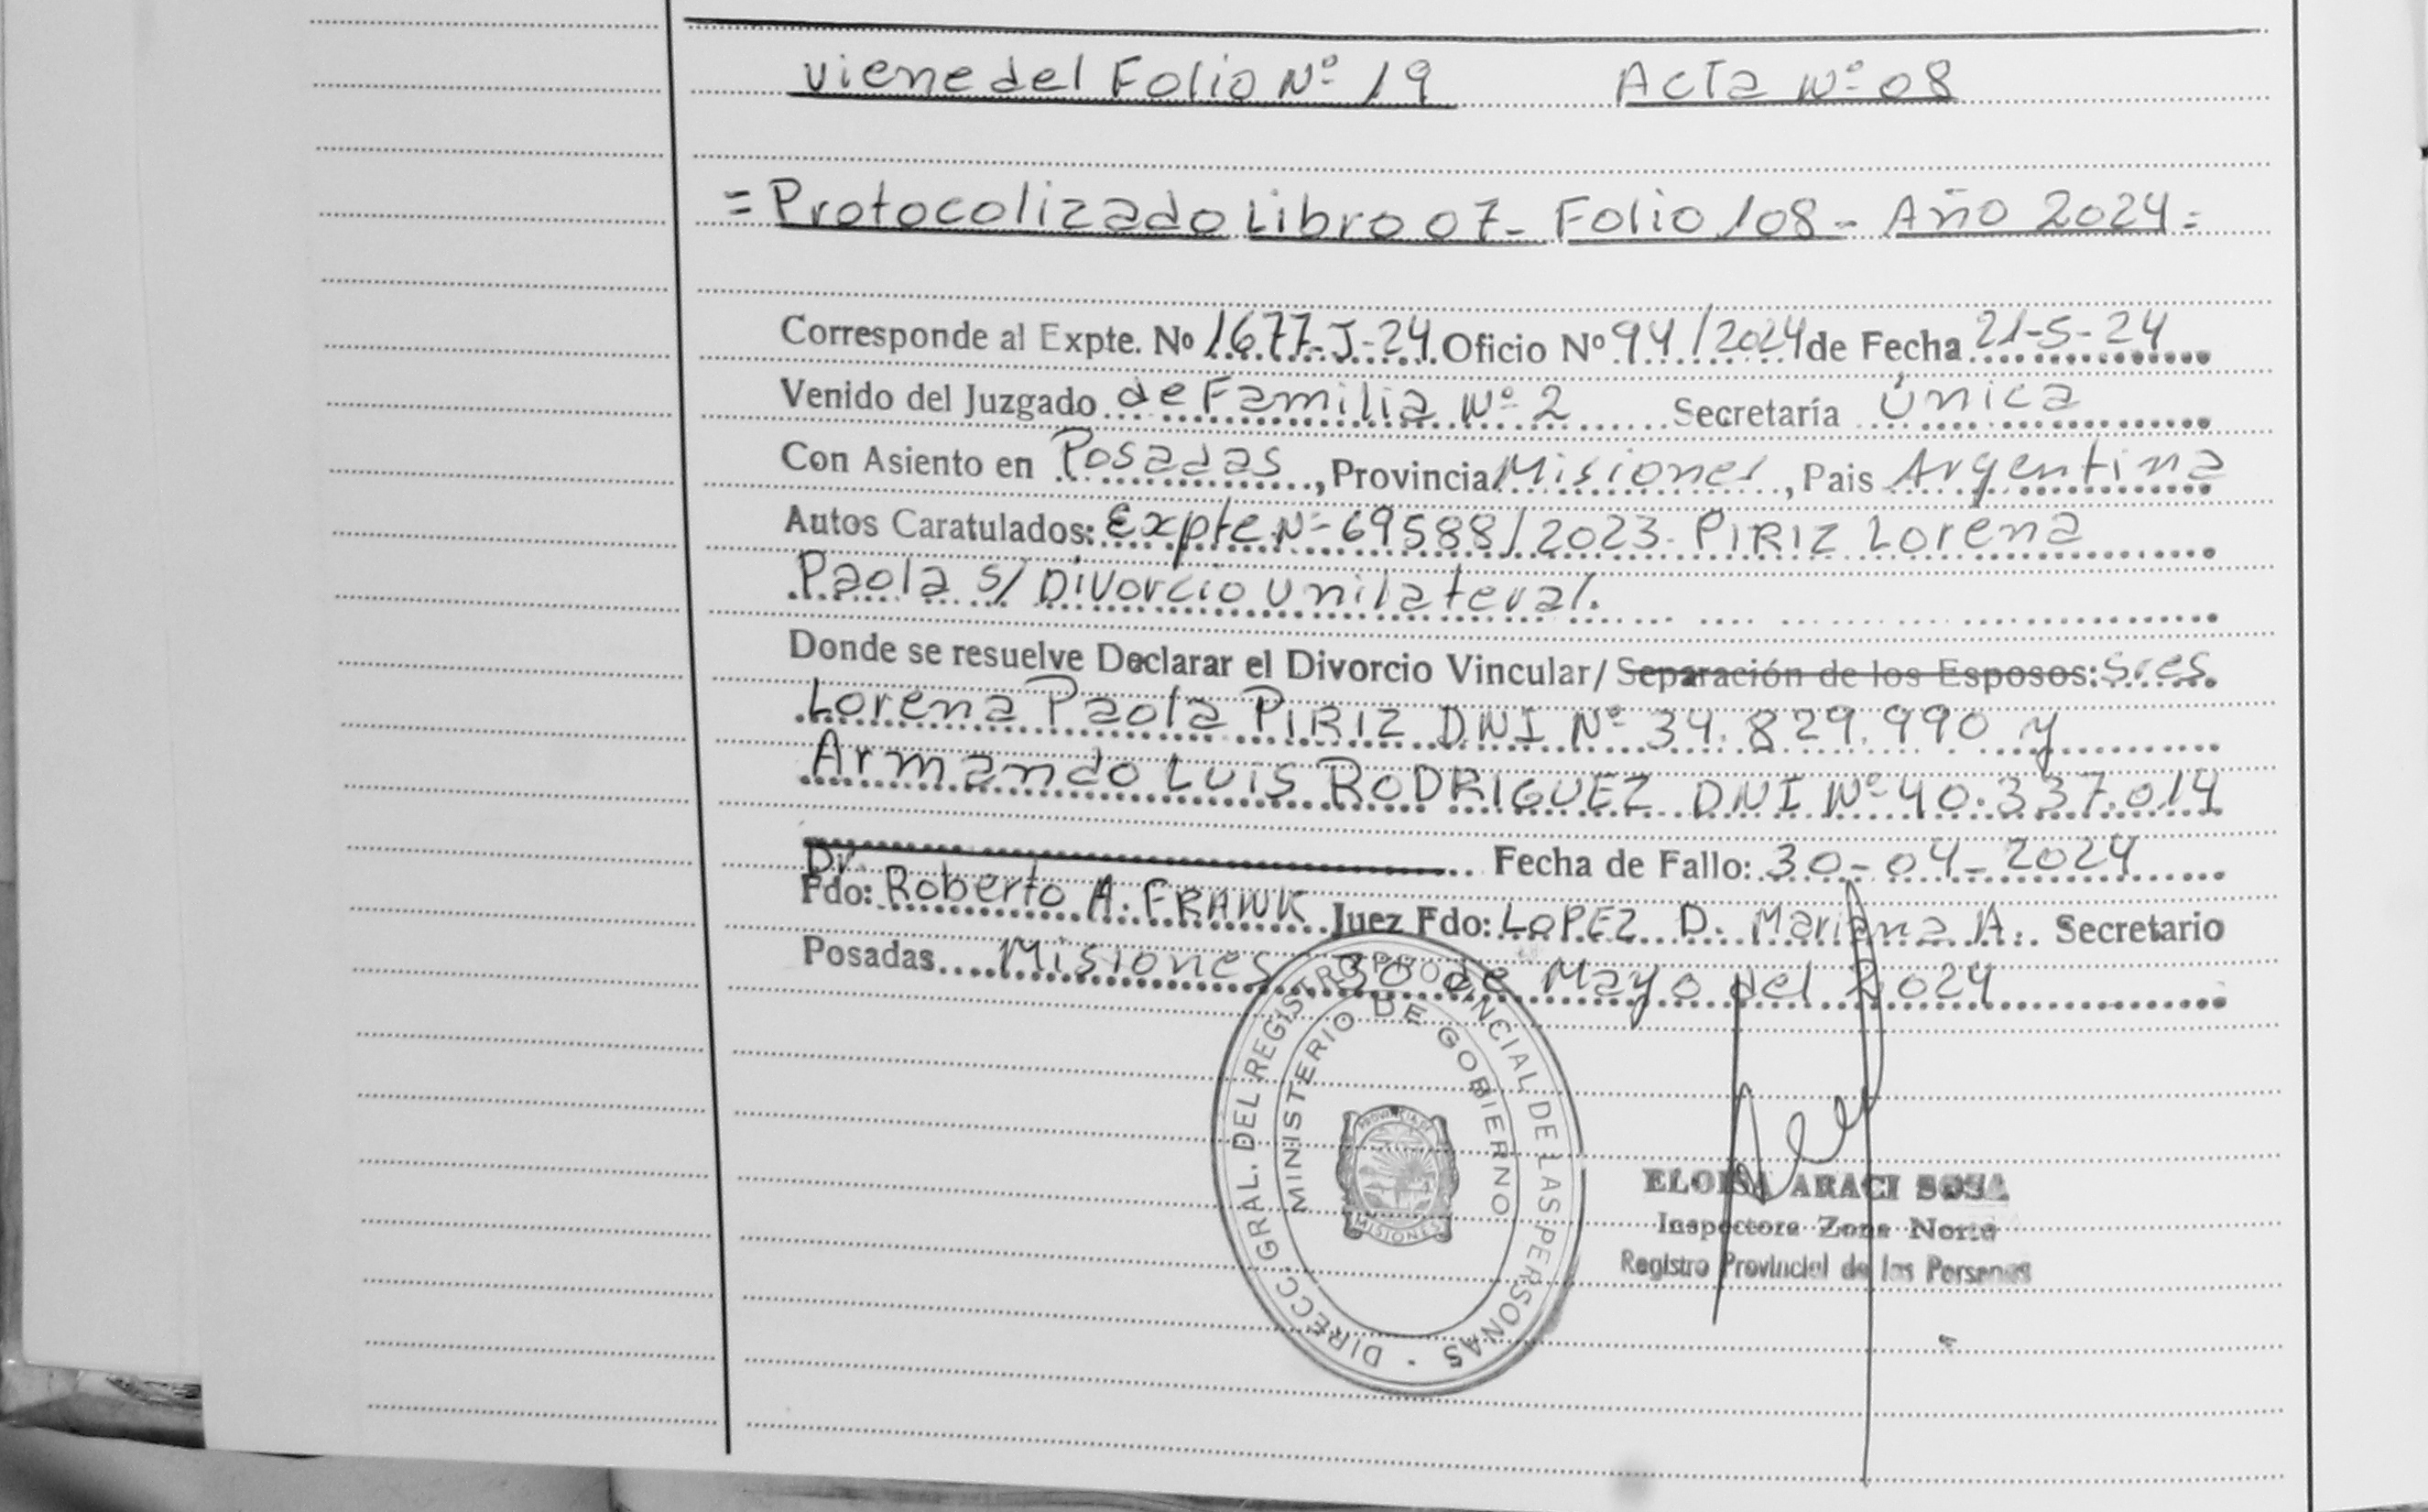 viene del Folio Nº 19 Acta Nº 08
= Protocolizado Libro 07 - Folio 108 - Año 2024 =
Corresponde al Expte. Nº 1677-J-24 Oficio Nº 94/2024 de Fecha 21-5-24
Venido del Juzgado de Familia Nº 2 Secretaría Única
Con Asiento en Posadas, Provincia Misiones, Pais Argentina
Autos Caratulados: Expte Nº 69588/2023. PIRIZ Lorena
Paola s/ Divorcio Unilateral.
Donde se resuelve Declarar el Divorcio Vincular/ Separación de los Esposos: Sres.
Lorena Paola PIRIZ DNI Nº 34.829.990 y
Armando Luis RODRIGUEZ DNI Nº 40.337.014
Fecha de Fallo: 30-04-2024
Dr.
Fdo: Roberto A. FRANK Juez Fdo: LOPEZ D. Mariana A. Secretario
Posadas Misiones 30 de Mayo del 2024
DIRECC. GRAL. DEL REGISTRO PROVINCIAL DE LAS PERSONAS
MINISTERIO DE GOBIERNO
PROVINCIA DE
MISIONES
ELOISA ARACI SOSA
Inspectora Zona Norte
Registro Provincial de las Personas